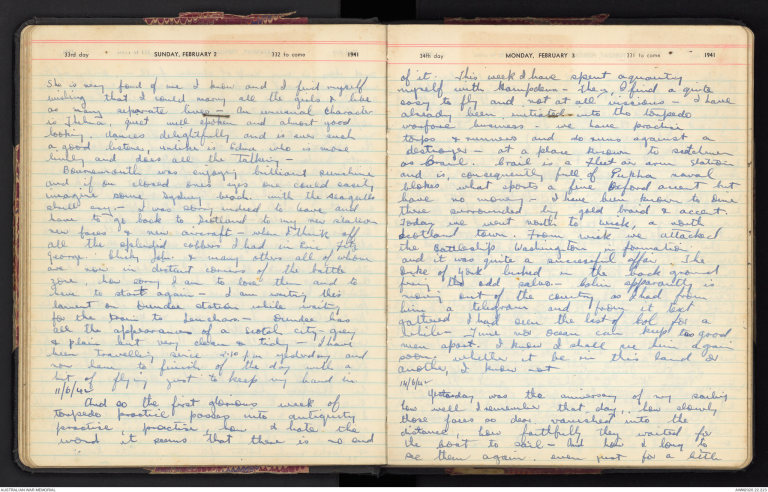 33rd day SUNDAY, FEBRUARY 2 332 to come 1941
She is very fond of me I know and I find myself
wishing that I could marry all the girls & live
as many separate lives - An unusual character
is Thelma, quiet well spoken and almost good
looking, dances delightfully and is ever such
a good listener, unlike is Edna who is more
lively and does all the talking -
Bournemouth was enjoying brilliant sunshine
and if on closed ones eyes one could easily
imagine some Sydney beach. with the seagulls
shrill cry - I was sorry indeed to leave and
have to go back to Scotland to my new station
new faces & new aircraft - when I think of
all the splendid cobbers I had in
George. John. & many others all of whom
are now in distant corners of the battle
zone, how sorry I am to lose them and to
have to start again - I am writing this
lament on Dundee station while waiting
for the train to Leuchars - Dundee has
all the appearances of a Scotch city - grey
& plain but very clean & tidy - I have
been travelling since 2.30 pm yesterday and
now have to finish of the day with a
bit of flying just to keep my hand in
11/6/42
And so the first glorious week of
torpedo practice passes into antiquity
practice, practice, how I hate the
word it seems that there is no end
34th day MONDAY, FEBRUARY 3 331 to come 1941
of it. This week I have spent acquainting
myself with Hampdens - They, I find a quite
easy to fly and not at all vicious - I have
already been initiated into the torpedo
warfare business - we have practice
torps & runners and do runs against a
destroyer - at a place known to Scotchmen
as Crail. Crail is a Fleet air arm station
and is consequently full of Pukka naval
blokes what sports a fine Oxford accent but
have no money - I have been known to dine
there surrounded by gold braid & accent.
Today we went north to Wick, a north
Scotland town. From Wick we attacked
the Battleship Washington in formation
and it was quite a successful affair. The
Duke of York lurked in the back ground
firing the odd salvo - Colin apparently is
moving out of the country as I had from
him a telegram and from it text
gathered I had seen the last of Col for a
while - Time nor ocean can keep two good
men apart. I know I shall see him again
soon, whether it be in this land or
another, I know not
14/6/42
Yesterday was the anniversary of my sailing
how well I remember that day, how slowly
those faces so dear, vanished into the
distance, how faithfully they waited for
the boat to sail - And how I long to
see them again. even just for a little
AUSTRALIAN WAR MEMORIAL